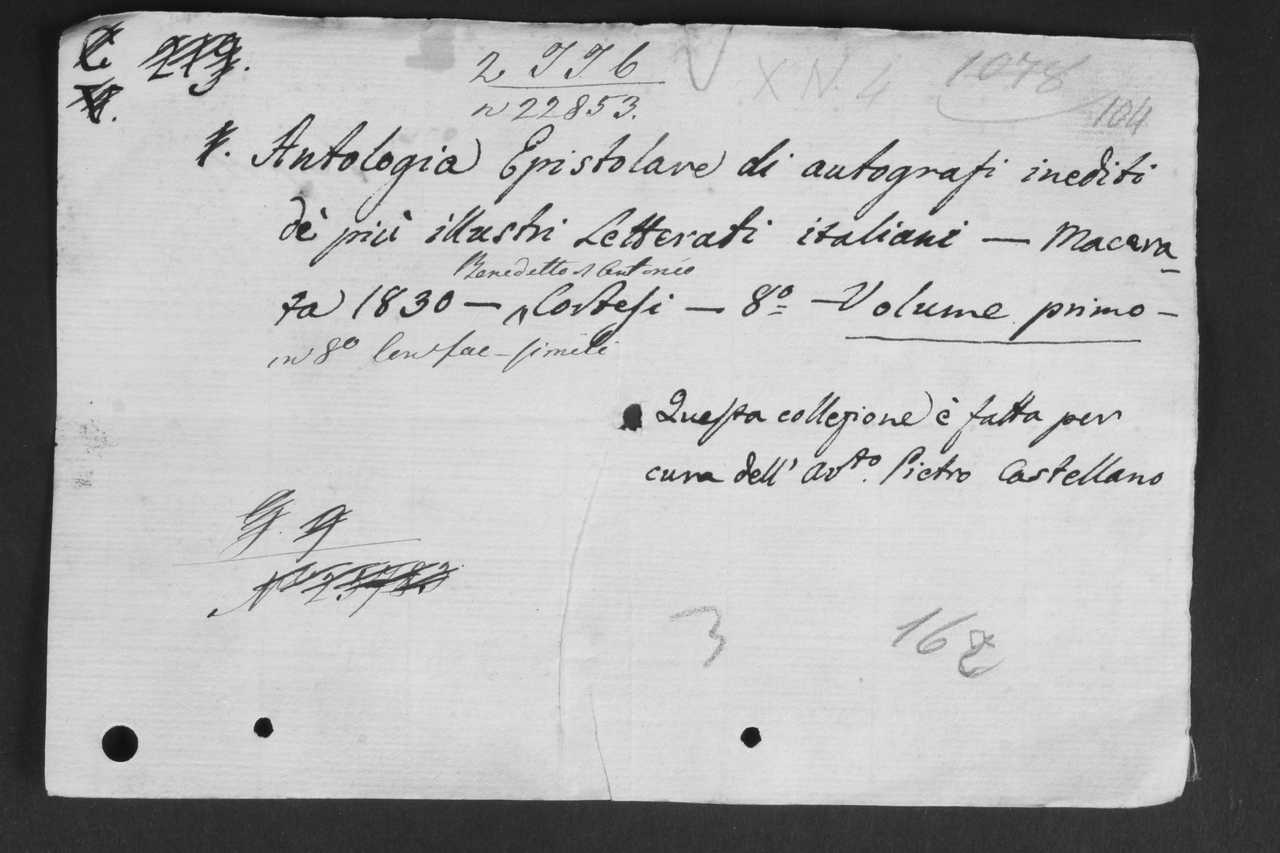 2 J J 6
X N. 4
1078
104
n 22853.
Antologia Epistolare di autografi inediti
de' più illustri Letterati italiani — Macera-
Benedetto d'Antonio
ta 1830 — Cortesi — 8º — Volume primo —
in 8º Con fac-simili
Questa collezione è fatta per
cura dell' Avto. Pietro Castellano
3
162